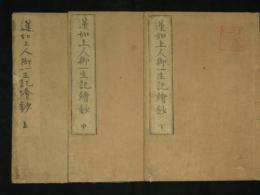 蓮如上人御一生記繪鈔 上
蓮如上人御一生記繪鈔 中
蓮如上人御一生記繪鈔 下